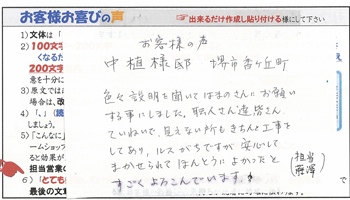 お客様お喜びの声
☞出来るだけ作成し貼り付ける様にして下さい
1）文体は「
2）100文字
くなるだ
200文字
意を十分に
3）原文では
場合は、改
4）「、」（読
しましょう。
5）「こんなに」
ームショッ
ると効果が
担当営業の
6）「とても
最後の文章
お客様の声
中植様邸　堺市香ヶ丘町
色々説明を聞いてはまさんにお願い
する事にしました。職人さん達皆さん
ていねいで、見えない所もきちんと工事を
してあり、ルスがちですが安心して
まかせられてほんとうによかったと
すごくよろこんでいます。
（担当